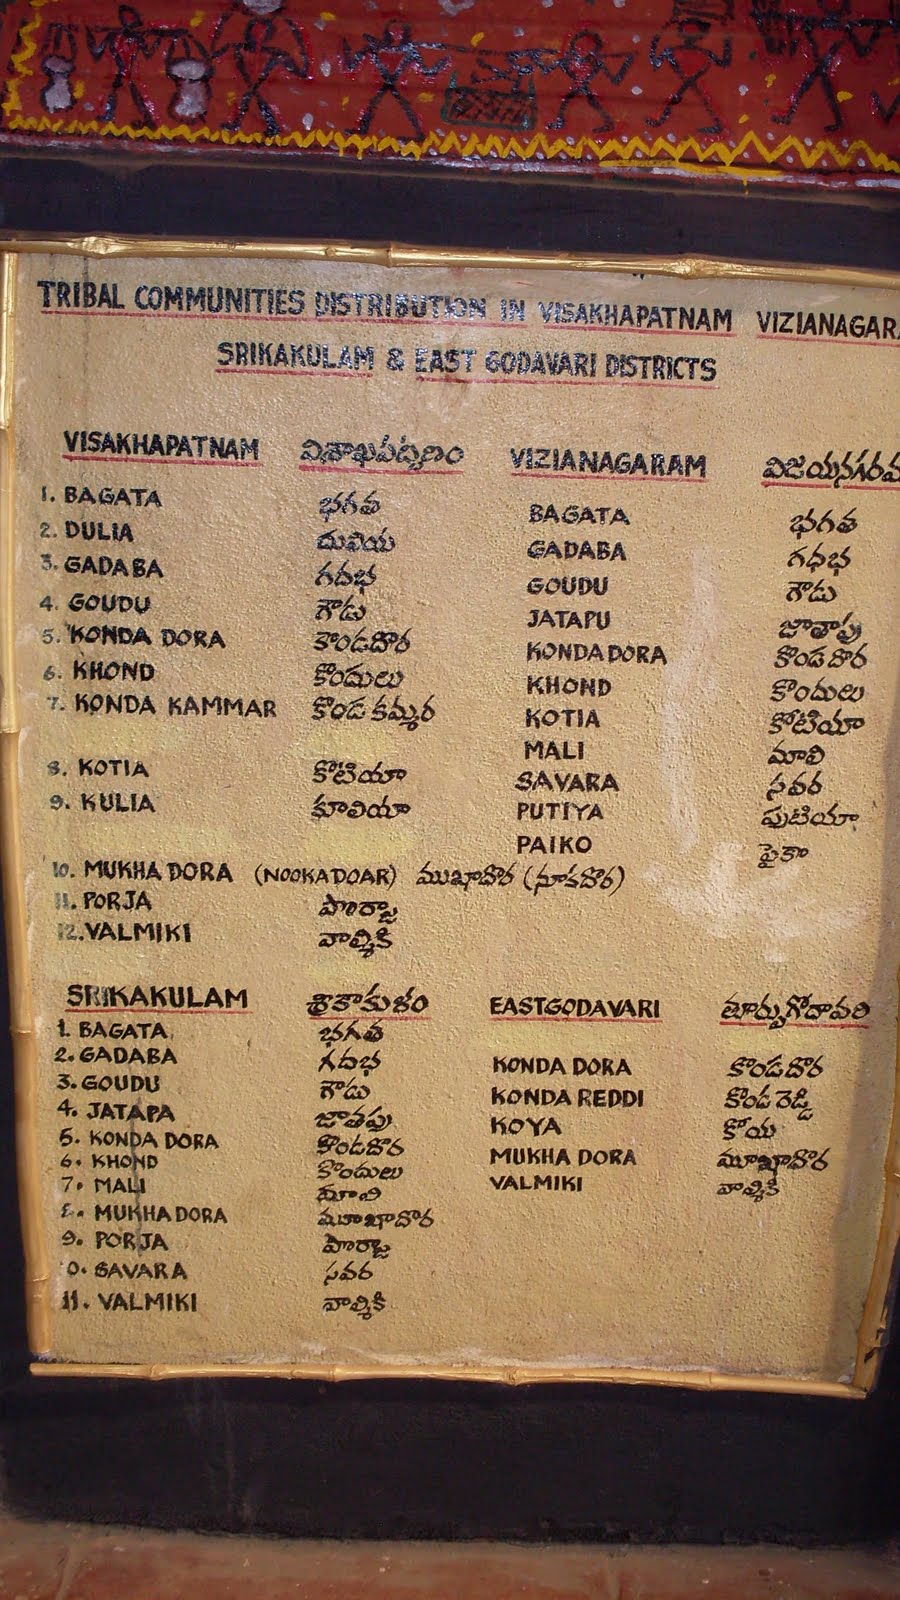 TRIBAL COMMUNITIES DISTRIBUTION IN VISAKHAPATNAM VIZIANAGARA
SRIKAKULAM & EAST GODAVARI DISTRICTS
VISAKHAPATNAM విశాఖపట్నణం
1. BAGATA భగత
2. DULIA దులియ
3. GADABA గదభ
4. GOUDU గౌడు
5. KONDA DORA కొండదొర
6. KHOND కొందులు
7. KONDA KAMMAR కొండ కమ్మర
8. KOTIA కోటియా
9. KULIA కూలియా
10. MUKHA DORA (NOOKA DOAR) ముఖాదొర (నూకదొర)
11. PORJA పొర్జా
12. VALMIKI వాల్మికి
VIZIANAGARAM విజయనగరమ
BAGATA భగత
GADABA గధభ
GOUDU గౌడు
JATAPU జాతాపు
KONDA DORA కొండదొర
KHOND కొందులు
KOTIA కోటియా
MALI మాలి
SAVARA సవర
PUTIYA పుటియా
PAIKO పైకో
SRIKAKULAM శ్రీకాకుళం
1. BAGATA భగత
2. GADABA గదభ
3. GOUDU గౌడు
4. JATAPA జాతపు
5. KONDA DORA కొండదొర
6. KHOND కొందులు
7. MALI మాలి
8. MUKHA DORA మూఖాదొర
9. PORJA పొర్జా
0. SAVARA సవర
11. VALMIKI వాల్మికి
EASTGODAVARI తూర్పుగోదావరి
KONDA DORA కొండదొర
KONDA REDDI కొండ రెడ్డి
KOYA కోయ
MUKHA DORA మూఖాదొర
VALMIKI వాల్మికి